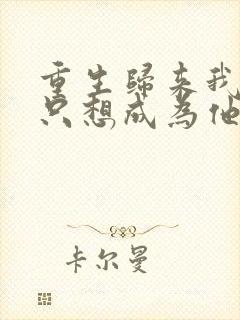 重生歸来我
只想成為他
卡尔曼